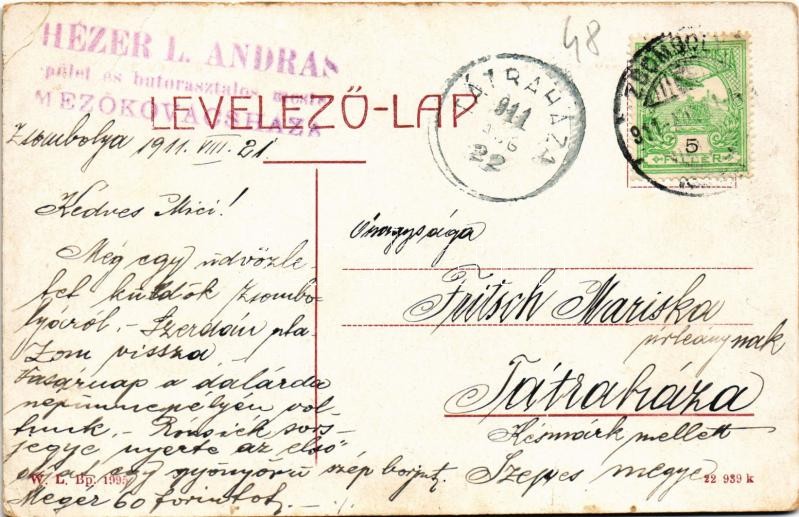 HÉZER L. ANDRAS
épület és butorasztalos mester
MEZŐKOVÁCSHÁZA
LEVELEZŐ-LAP
48
TÁTRAHÁZA
911
AUG
22
ZSOMBOLYA
911
5
FILLÉR
Zsombolya 1911. VIII. 21.
Kedves Mici!
Még egy üdvözle-
tet küldök Zsombo-
lyáról. - Szerdán uta-
zom vissza
Vasárnap a dalárda
népünnepélyén vol-
tunk. - sors-
jegye nyerte az első
dijat egy gyönyorű szép borjut.
Megér 60 forintot. -
Őnagysága
Fritsch Mariska
úrleánynak
Tátraháza
Késmárk mellett
Szepes megye
W. L. Bp. 1995
22 939 k